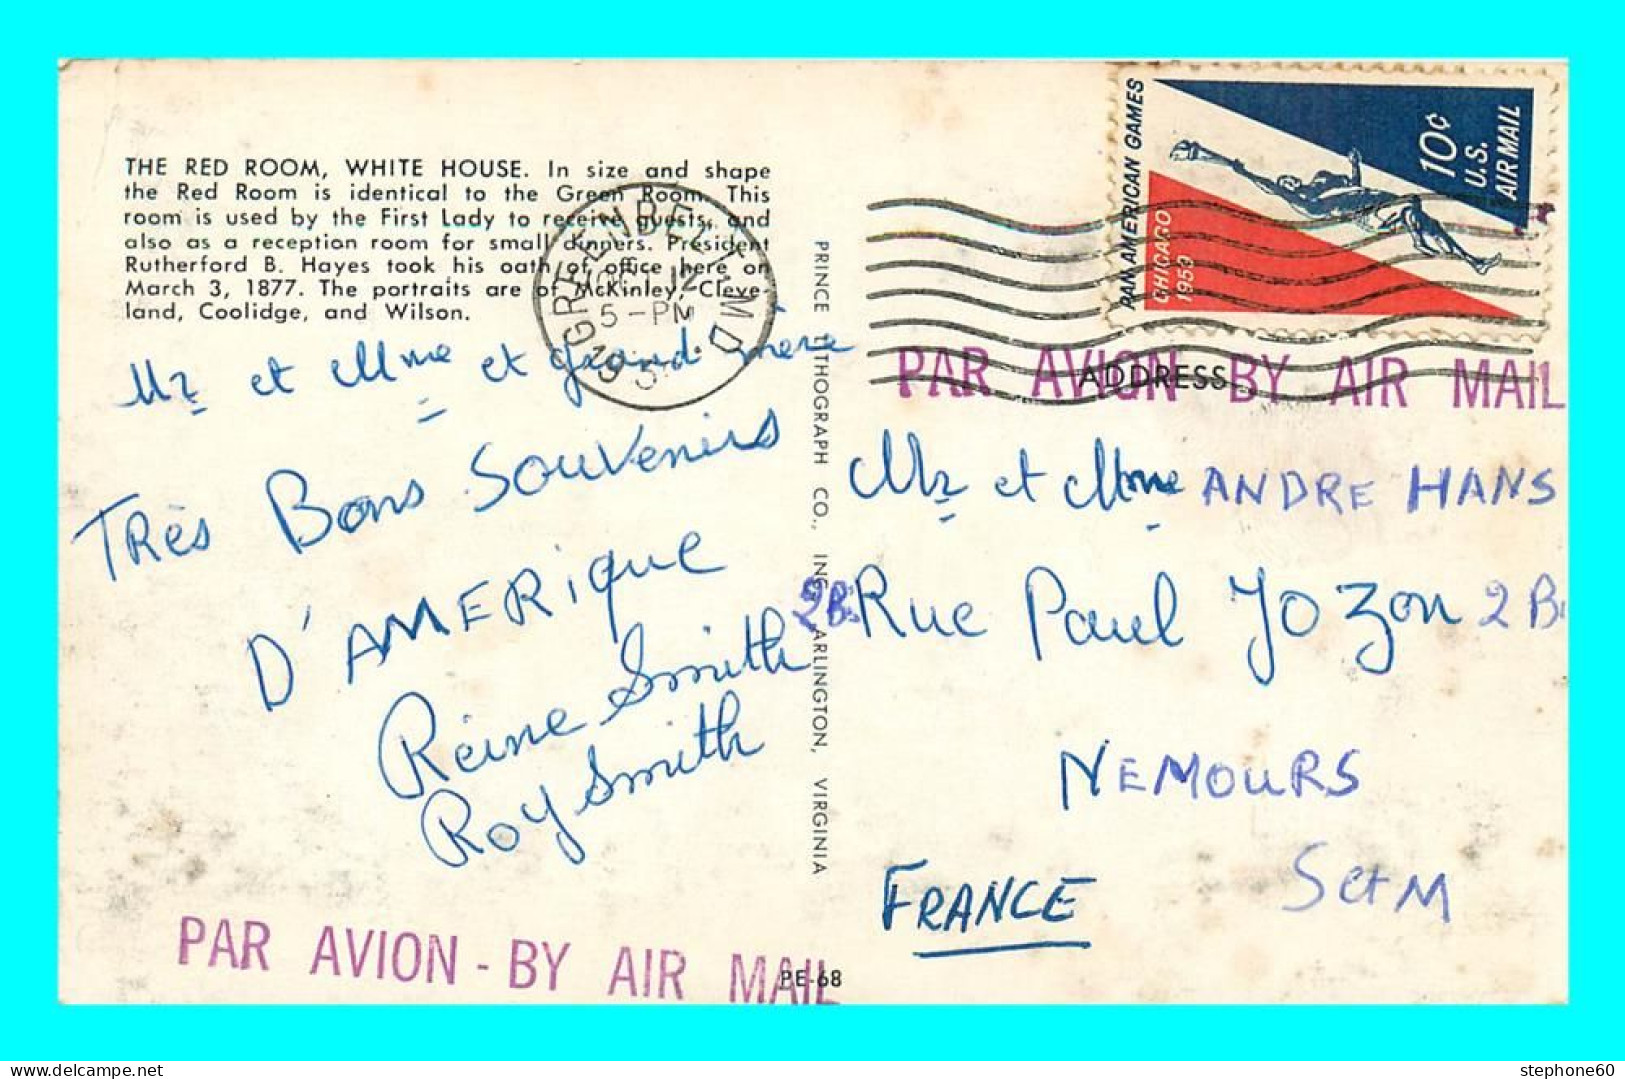 THE RED ROOM, WHITE HOUSE. In size and shape
the Red Room is identical to the Green Room. This
room is used by the First Lady to receive guests, and
also as a reception room for small dinners. President
Rutherford B. Hayes took his oath of office here on
March 3, 1877. The portraits are of McKinley, Cleve-
land, Coolidge, and Wilson.
GREENBELT MD
12
5-PM
Mr et Mme et grand mère
TRès Bons Souvenirs
D'AMERique
Reine Smith
Roy Smith
PAR AVION - BY AIR MAIL
PE-68
PRINCE LITHOGRAPH CO., INC., ARLINGTON, VIRGINIA
PAN AMERICAN GAMES
CHICAGO
1959
10¢
U.S.
AIR MAIL
PAR AVION - BY AIR MAIL
ADDRESS
Mr et Mme ANDRE HANS
2B. Rue Paul Jozon 2B.
NEMOURS
S et M
FRANCE
stephone60